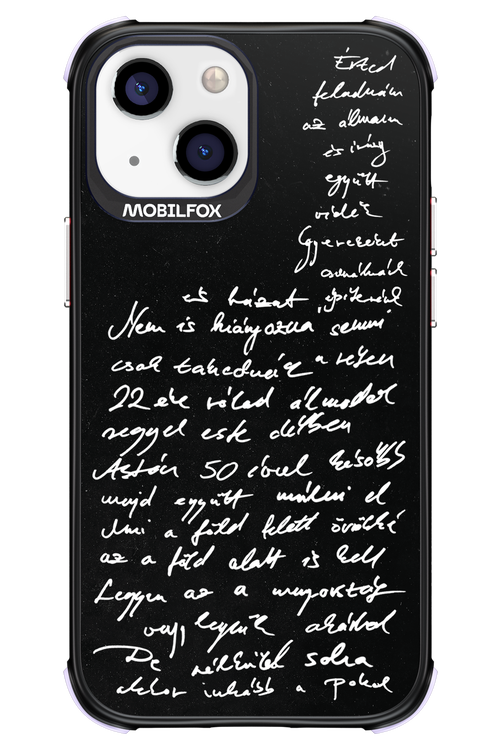 MOBILFOX
Érted
feladnám
az álmom
és így
együtt
Gyerekeint
csinálnánk
és házat építenénk
Nem is hiányozna semmi
csak
22 éve rólad álmodok
reggel este délben
Aztán 50 évvel később
majd együtt múlni el
Ami a föld felett örökké
az a föld alatt is kell
Legyen az a mennyország
vagy legyünk akárhol
De nélküled soha
akkor inkább a Pokol